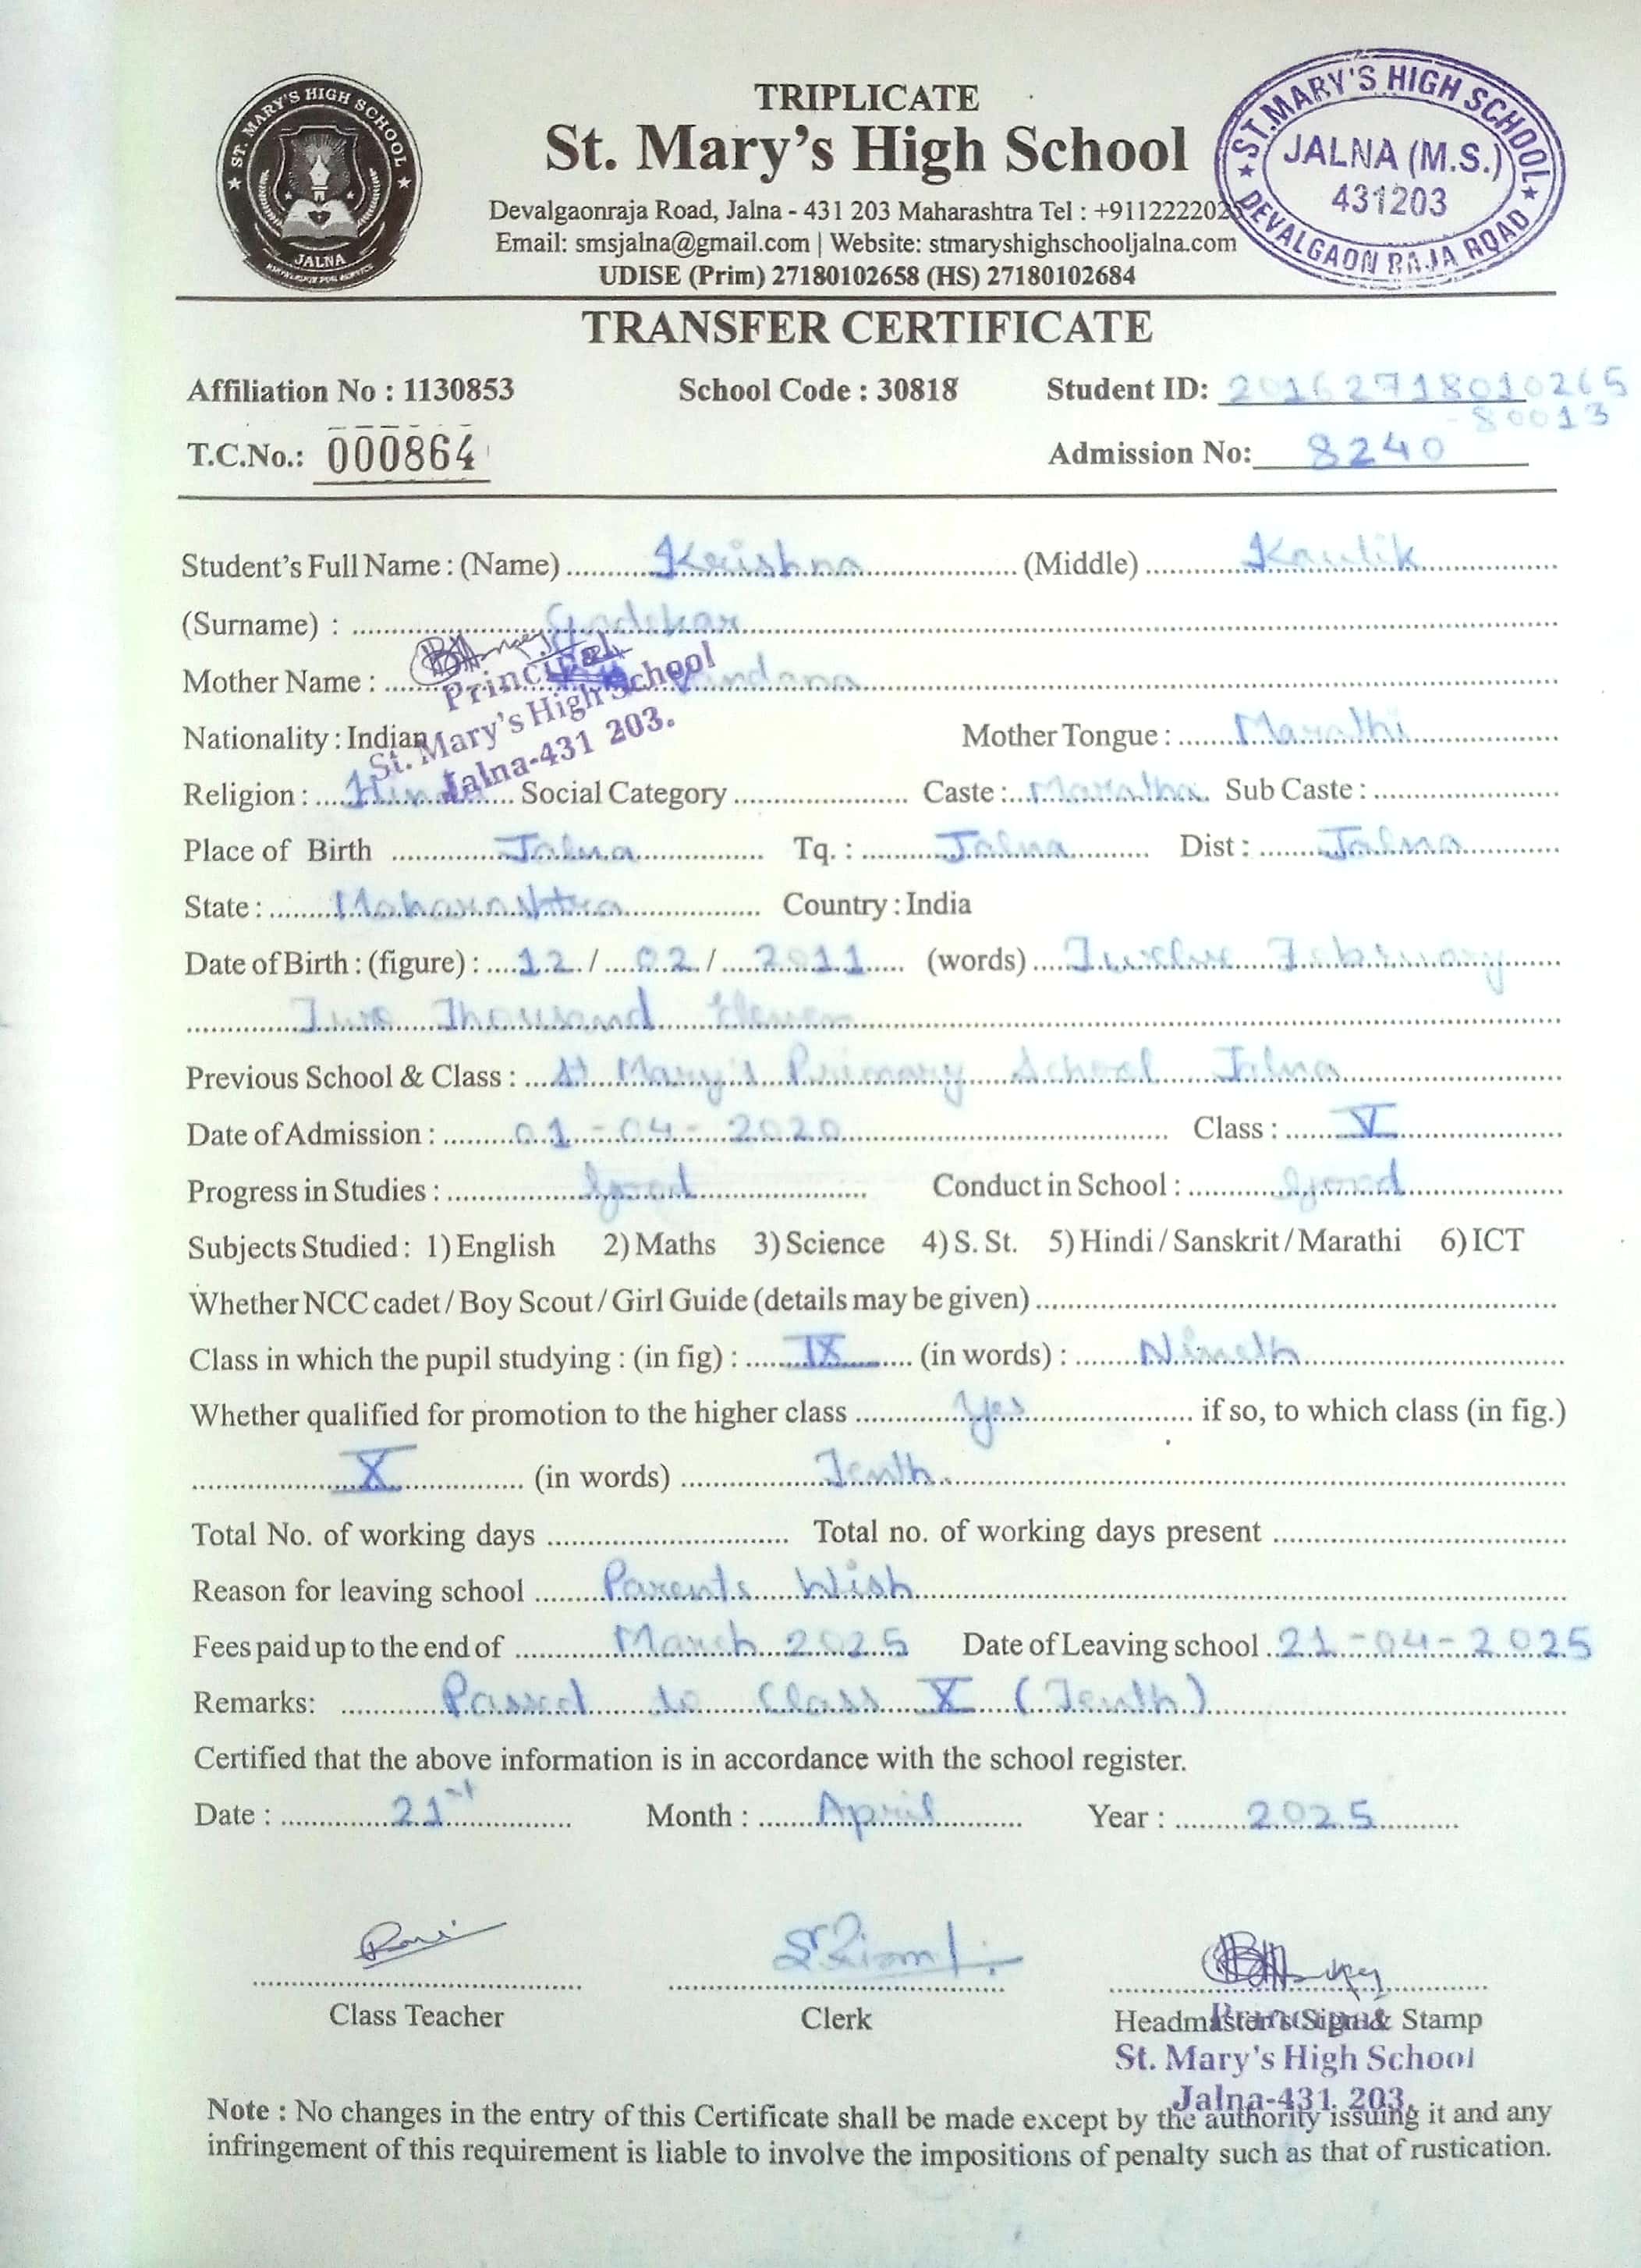 TRIPLICATE
St. Mary's High School
Devalgaonraja Road, Jalna - 431 203 Maharashtra Tel : +911222202
Email: smsjalna@gmail.com | Website: stmaryshighschooljalna.com
UDISE (Prim) 27180102658 (HS) 27180102684
ST. MARY'S HIGH SCHOOL
JALNA
ST.MARY'S HIGH SCHOOL
JALNA (M.S.)
431203
DEVALGAON RAJA ROAD
TRANSFER CERTIFICATE
Affiliation No : 1130853 School Code : 30818 Student ID: 20162718010265
-80013
T.C.No.: 000864 Admission No: 8240
Student's Full Name : (Name) Krishna (Middle)
(Surname) : Gadekar
Mother Name : Vandana
Principal
St. Mary's High School
Jalna-431 203.
Nationality : Indian Mother Tongue : Marathi
Religion : Hindu Social Category Caste : Maratha Sub Caste :
Place of Birth Jalna Tq. : Jalna Dist : Jalna
State : Maharashtra Country : India
Date of Birth : (figure) : 12 / 02 / 2011 (words) Twelve February
Two Thousand Eleven
Previous School & Class : St Mary's Primary School Jalna
Date of Admission : 01 - 04 - 2020 Class : V
Progress in Studies : Good Conduct in School : Good
Subjects Studied : 1) English 2) Maths 3) Science 4) S. St. 5) Hindi / Sanskrit / Marathi 6) ICT
Whether NCC cadet / Boy Scout / Girl Guide (details may be given)
Class in which the pupil studying : (in fig) : IX (in words) : Nineth
Whether qualified for promotion to the higher class Yes if so, to which class (in fig.)
X (in words) Tenth
Total No. of working days Total no. of working days present
Reason for leaving school Parents Wish
Fees paid up to the end of March 2025 Date of Leaving school 21-04-2025
Remarks: Passed to Class X (Tenth)
Certified that the above information is in accordance with the school register.
Date : 21st Month : April Year : 2025
Class Teacher Clerk Headmaster's Sign & Stamp
Principal
St. Mary's High School
Jalna-431 203.
Note : No changes in the entry of this Certificate shall be made except by the authority issuing it and any
infringement of this requirement is liable to involve the impositions of penalty such as that of rustication.